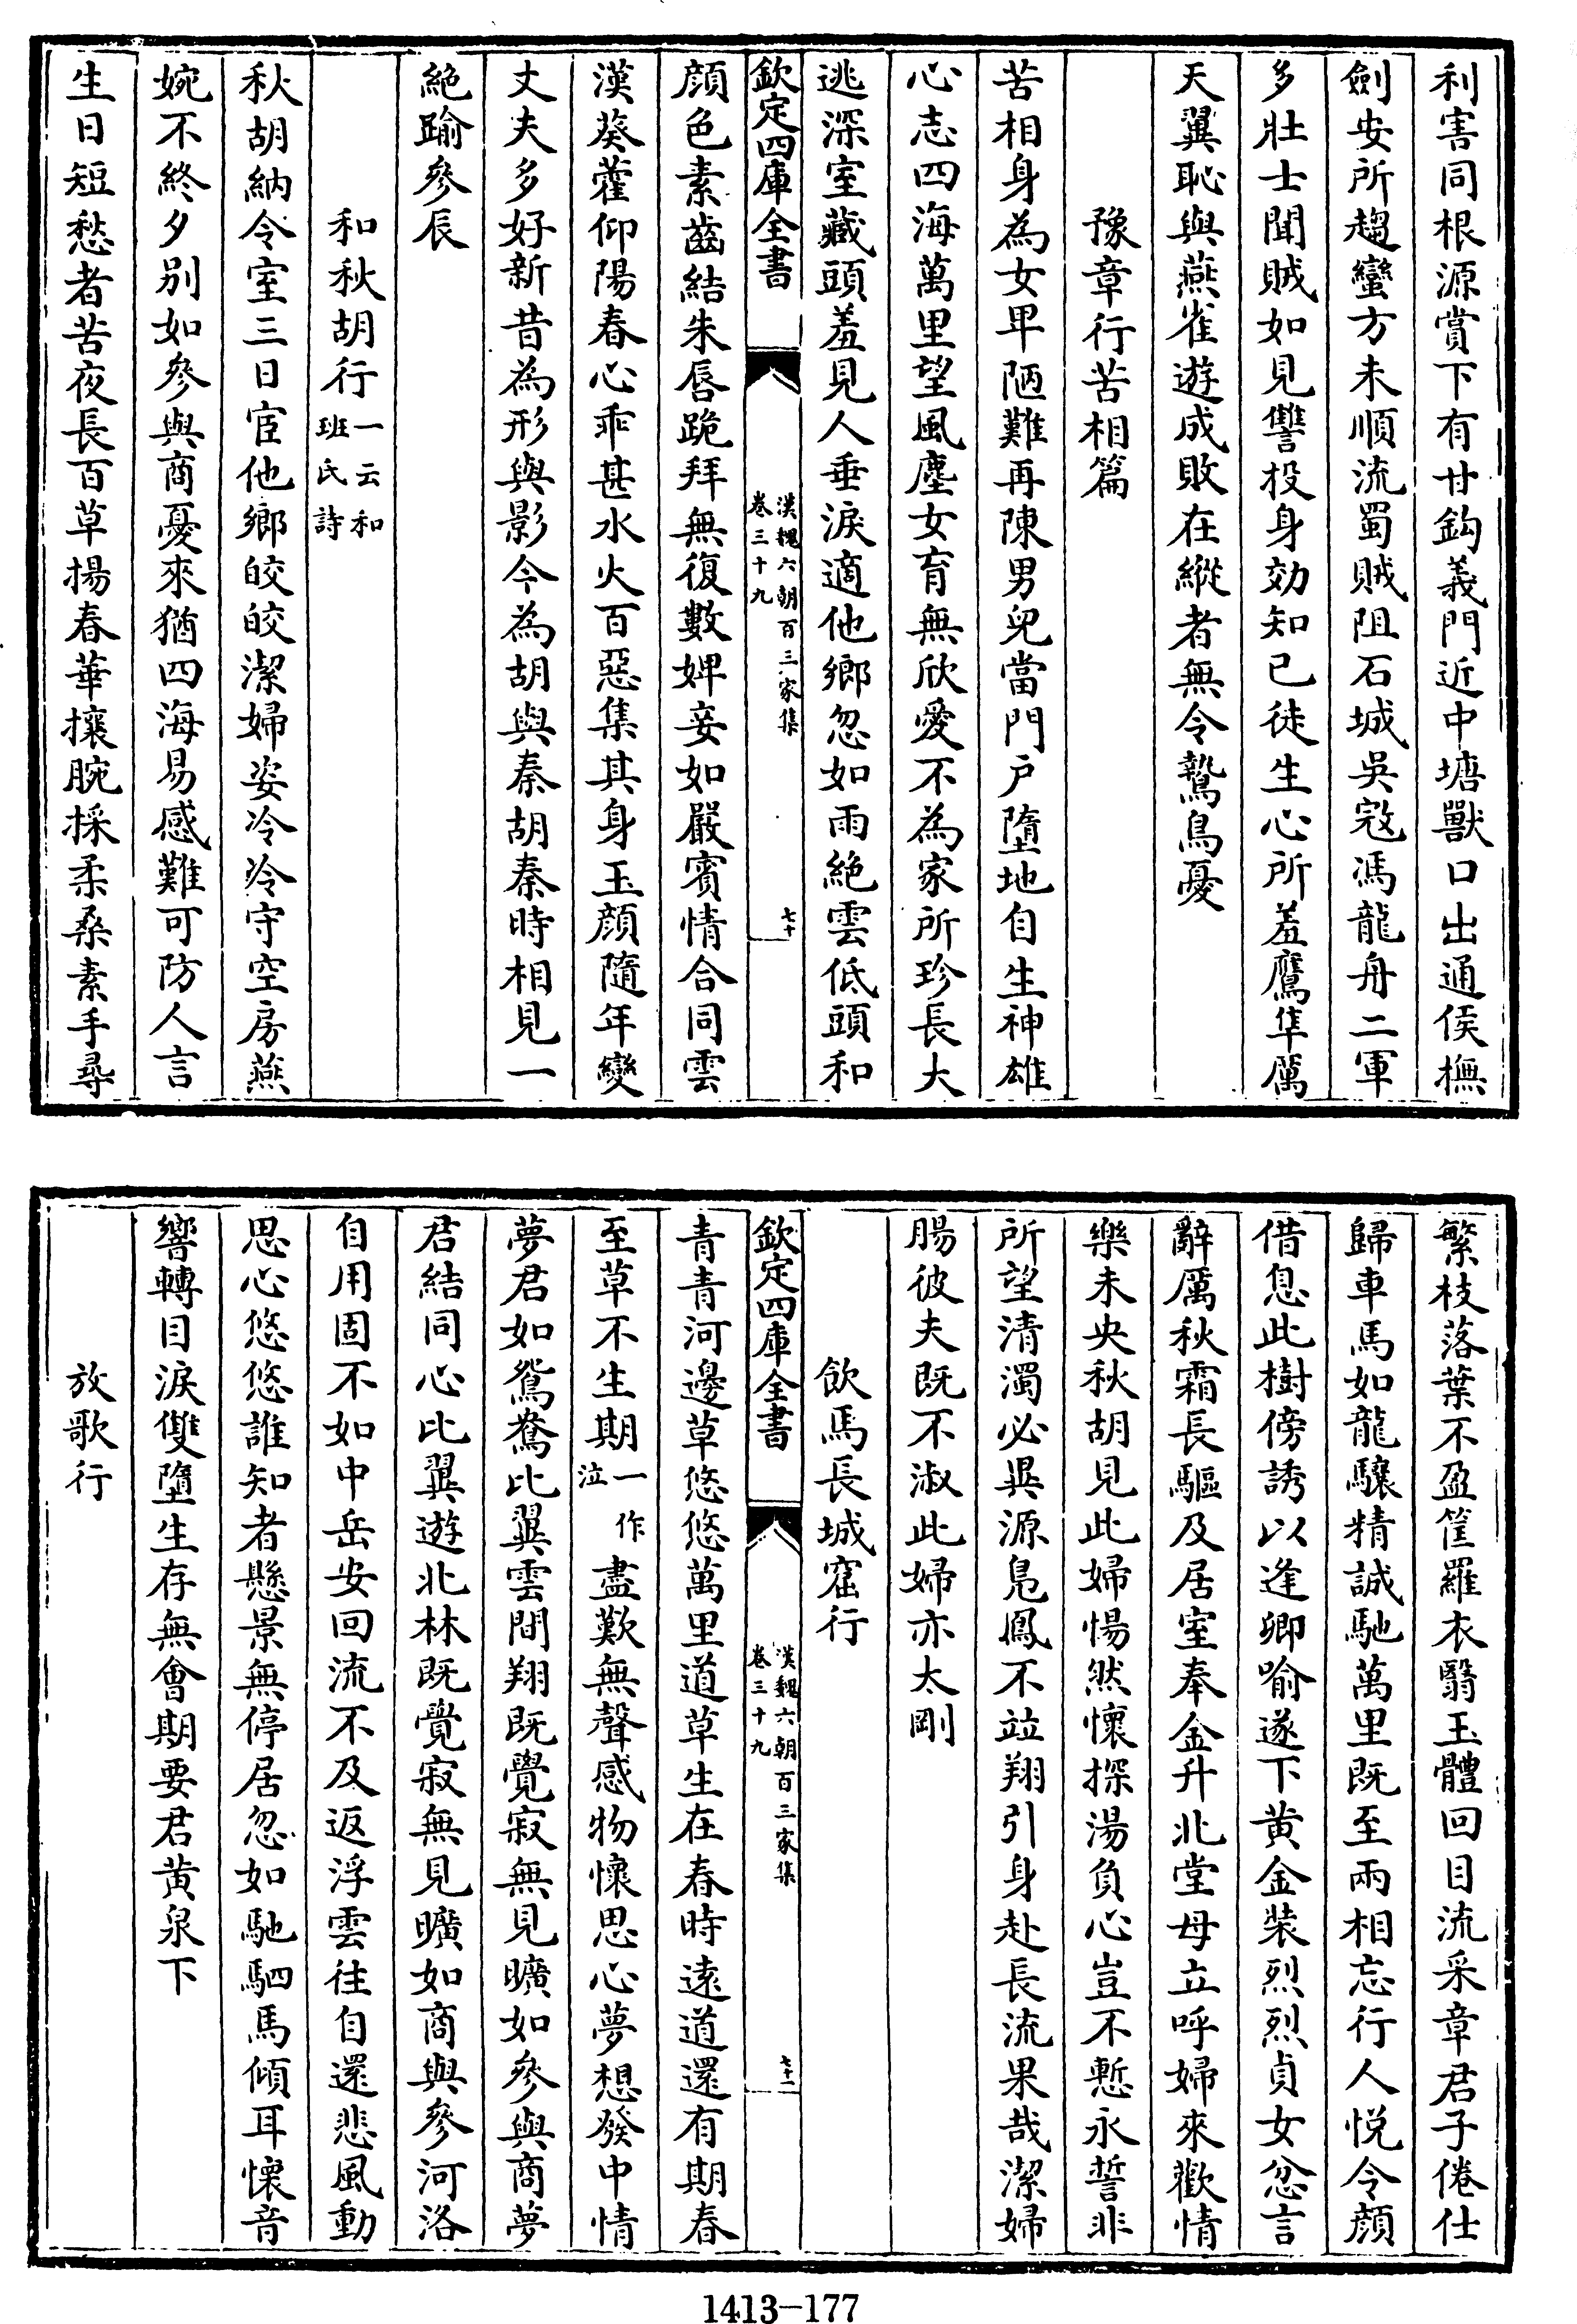 利害同根源賞下有甘鈎義門近中塘獸口出通侯撫
劍安所趨蠻方未順流蜀賊阻石城吳寇馮龍舟二軍
多壯士聞賊如見讐投身効知已徒生心所羞鷹隼厲
天翼恥與燕雀遊成敗在縱者無令鷙鳥憂
豫章行苦相篇
苦相身為女卑陋難再陳男兒當門戶墮地自生神雄
心志四海萬里望風塵女育無欣愛不為家所珍長大
逃深室藏頭羞見人垂淚適他鄉忽如雨絕雲低頭和
欽定四庫全書
漢魏六朝百三家集
卷三十九
七十
顏色素齒結朱唇跪拜無復數婢妾如嚴賓情合同雲
漢葵藿仰陽春心乖甚水火百惡集其身玉顏隨年變
丈夫多好新昔為形與影今為胡與秦胡秦時相見一
絕踰參辰
和秋胡行一云和班氏詩
秋胡納令室三日宦他鄉皎皎潔婦姿泠泠守空房燕
婉不終夕別如參與商憂來猶四海易感難可防人言
生日短愁者苦夜長百草揚春華攘腕採柔桑素手尋
繁枝落葉不盈筐羅衣翳玉體回目流采章君子倦仕
歸車馬如龍驤精誠馳萬里既至兩相忘行人悅令顏
借息此樹傍誘以逢卿喻遂下黃金裝烈烈貞女忿言
辭厲秋霜長驅及居室奉金升北堂母立呼婦來歡情
樂未央秋胡見此婦惕然懷探湯負心豈不慙永誓非
所望清濁必異源鳧鳳不竝翔引身赴長流果哉潔婦
腸彼夫既不淑此婦亦太剛
飲馬長城窟行
欽定四庫全書
漢魏六朝百三家集
卷三十九
七十一
青青河邊草悠悠萬里道草生在春時遠道還有期春
至草不生期一作泣盡歎無聲感物懷思心夢想發中情
夢君如鴛鴦比翼雲間翔既覺寂無見曠如參與商夢
君結同心比翼遊北林既覺寂無見曠如商與參河洛
自用固不如中岳安回流不及返浮雲往自還悲風動
思心悠悠誰知者懸景無停居忽如馳駟馬傾耳懷音
響轉目淚雙墮生存無會期要君黃泉下
放歌行
1413-177